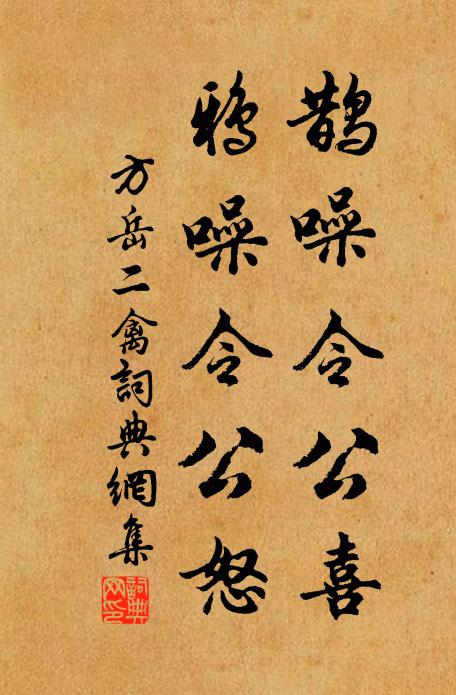 鹊噪令公喜
鴉噪令公怒
方岳二禽詞典網集
詞典網印